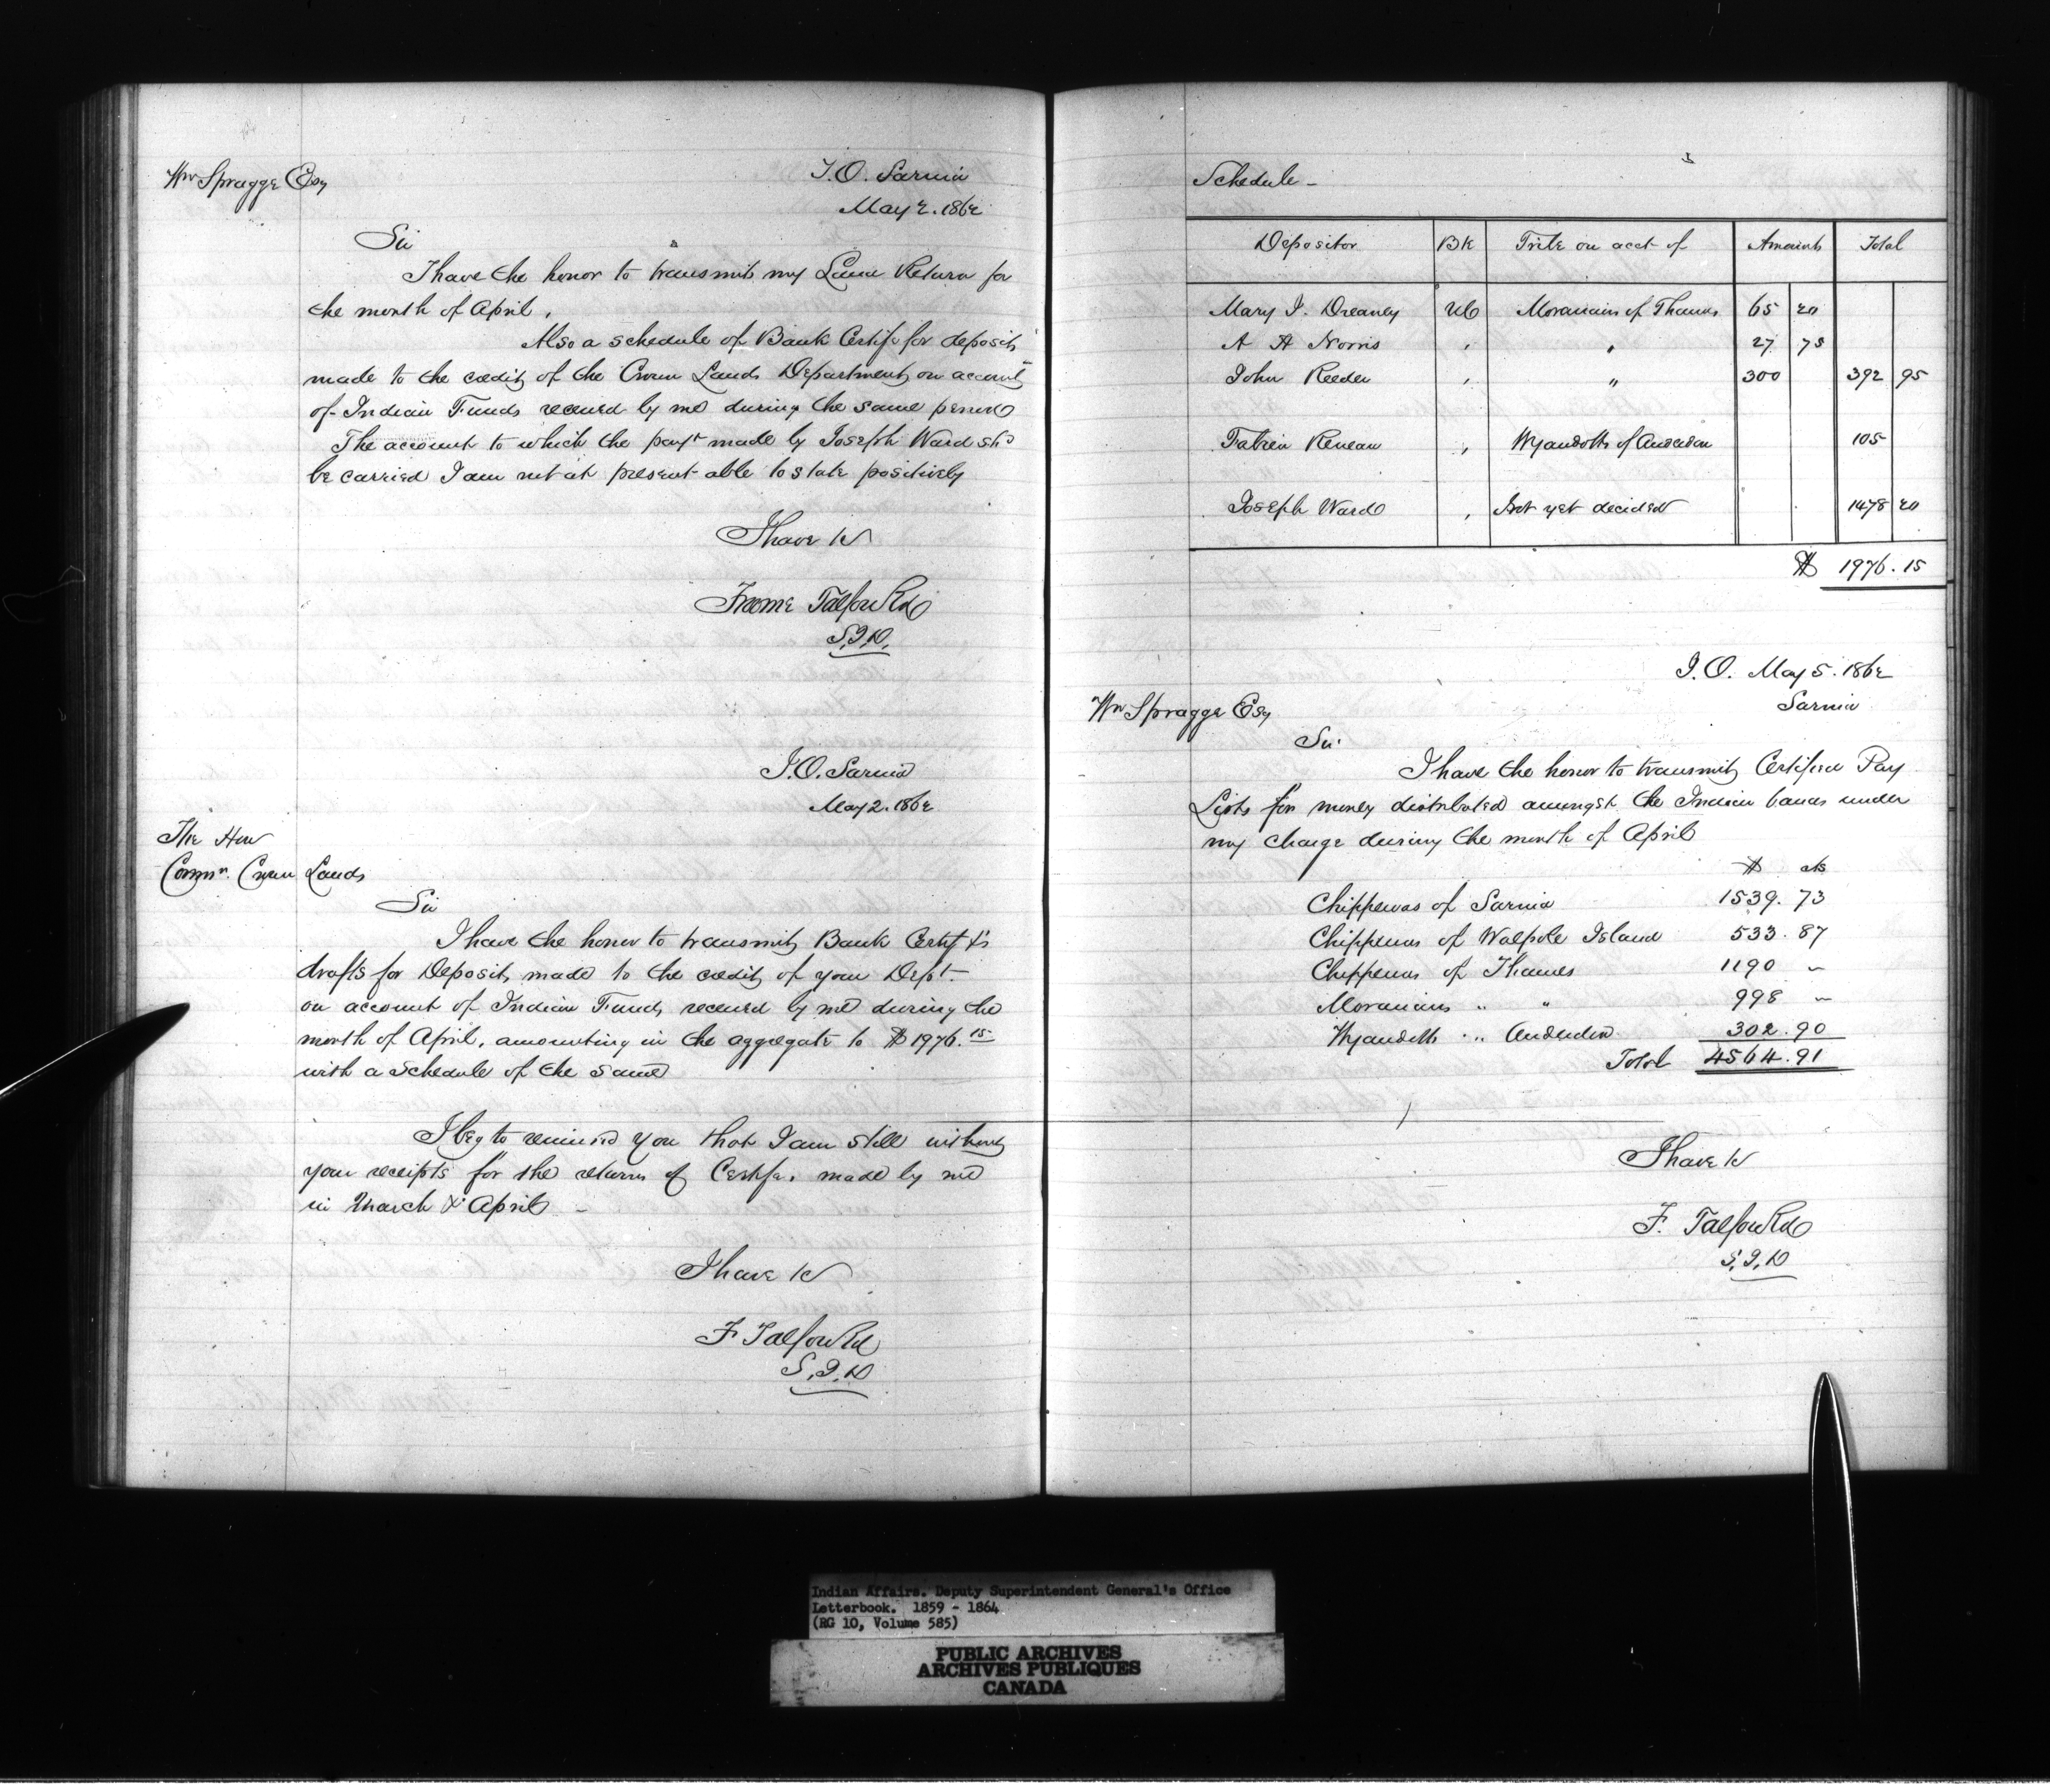 Wm Spragge Esq
I.O. Sarnia
May 2. 1862
Sir
I have the honor to transmit my Land Return for
the month of April.
Also a schedule of Bank Certifs for deposits
made to the credit of the Crown Lands Department on account
of Indian Funds received by me during the same period
The account to which the payt made by Joseph Ward shd
be carried I am not at present able to state positively
I have &c
Froome Talfourd
S.I.A.
I.O. Sarnia
May 2. 1862
The Hon
Commr. Crown Lands
Sir
I have the honor to transmit Bank Certifs &
drafts for Deposits made to the credit of your Dept
on account of Indian Funds received by me during the
month of April, amounting in the aggregate to $1976.15
with a schedule of the same
I beg to remind you that I am still without
your receipts for the returns of Certifs. made by me
in March & April -
I have &c
F Talfourd
S.I.A
Schedule -
Depositor BK Tribe on acct of Amounts Total
Mary I. Dreaney UC Moravians of Thames 65 20
A A Norris " " 27 75
John Reeder " " 300 392 95
Fabien Reneau " Wyandotts of Anderdon 105
Joseph Ward " Not yet decided 1478 20
$ 1976.15
I.O. May 5. 1862
Sarnia
Wm Spragge Esq
Sir
I have the honor to transmit Certified Pay
Lists for money distributed amongst the Indian bands under
my charge during the month of April
$ cts
Chippewas of Sarnia 1539.73
Chippewas of Walpole Island 533.87
Chippewas of Thames 1190 "
Moravians " " 998 "
Wyandotts " Anderdon 302.90
Total 4564.91
I have &c
F. Talfourd
S.I.A
Indian Affairs. Deputy Superintendent General's Office
Letterbook. 1859 - 1864
(RG 10, Volume 585)
PUBLIC ARCHIVES
ARCHIVES PUBLIQUES
CANADA